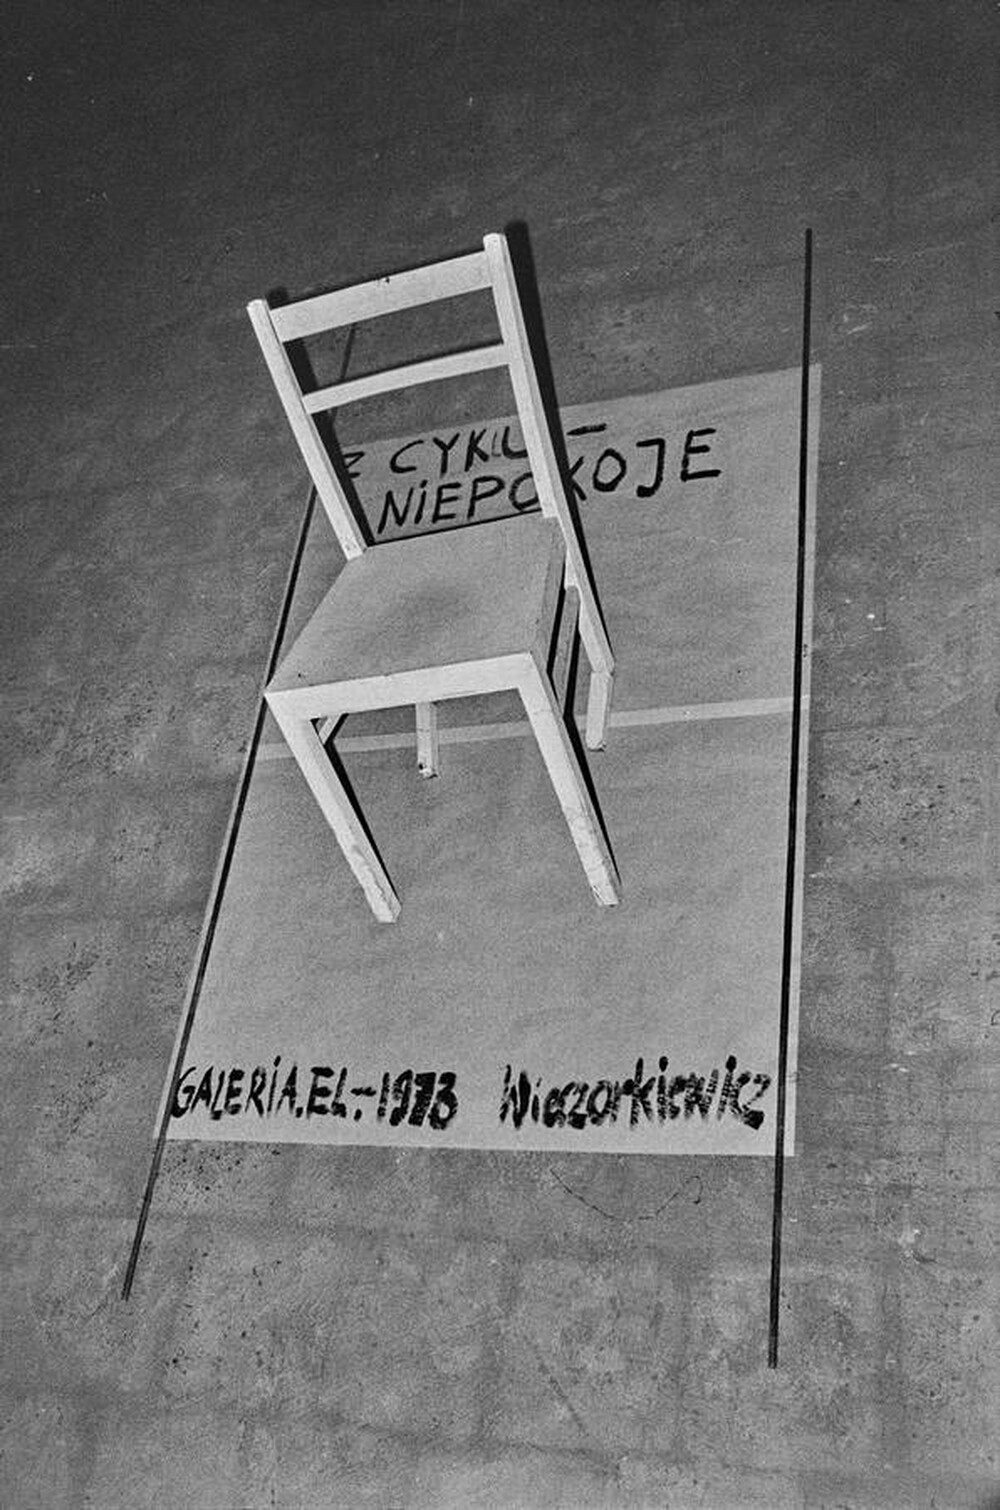 Z CYKLU –
NIEPOKOJE
GALERIA.EL.–1973 Wieczorkiewicz